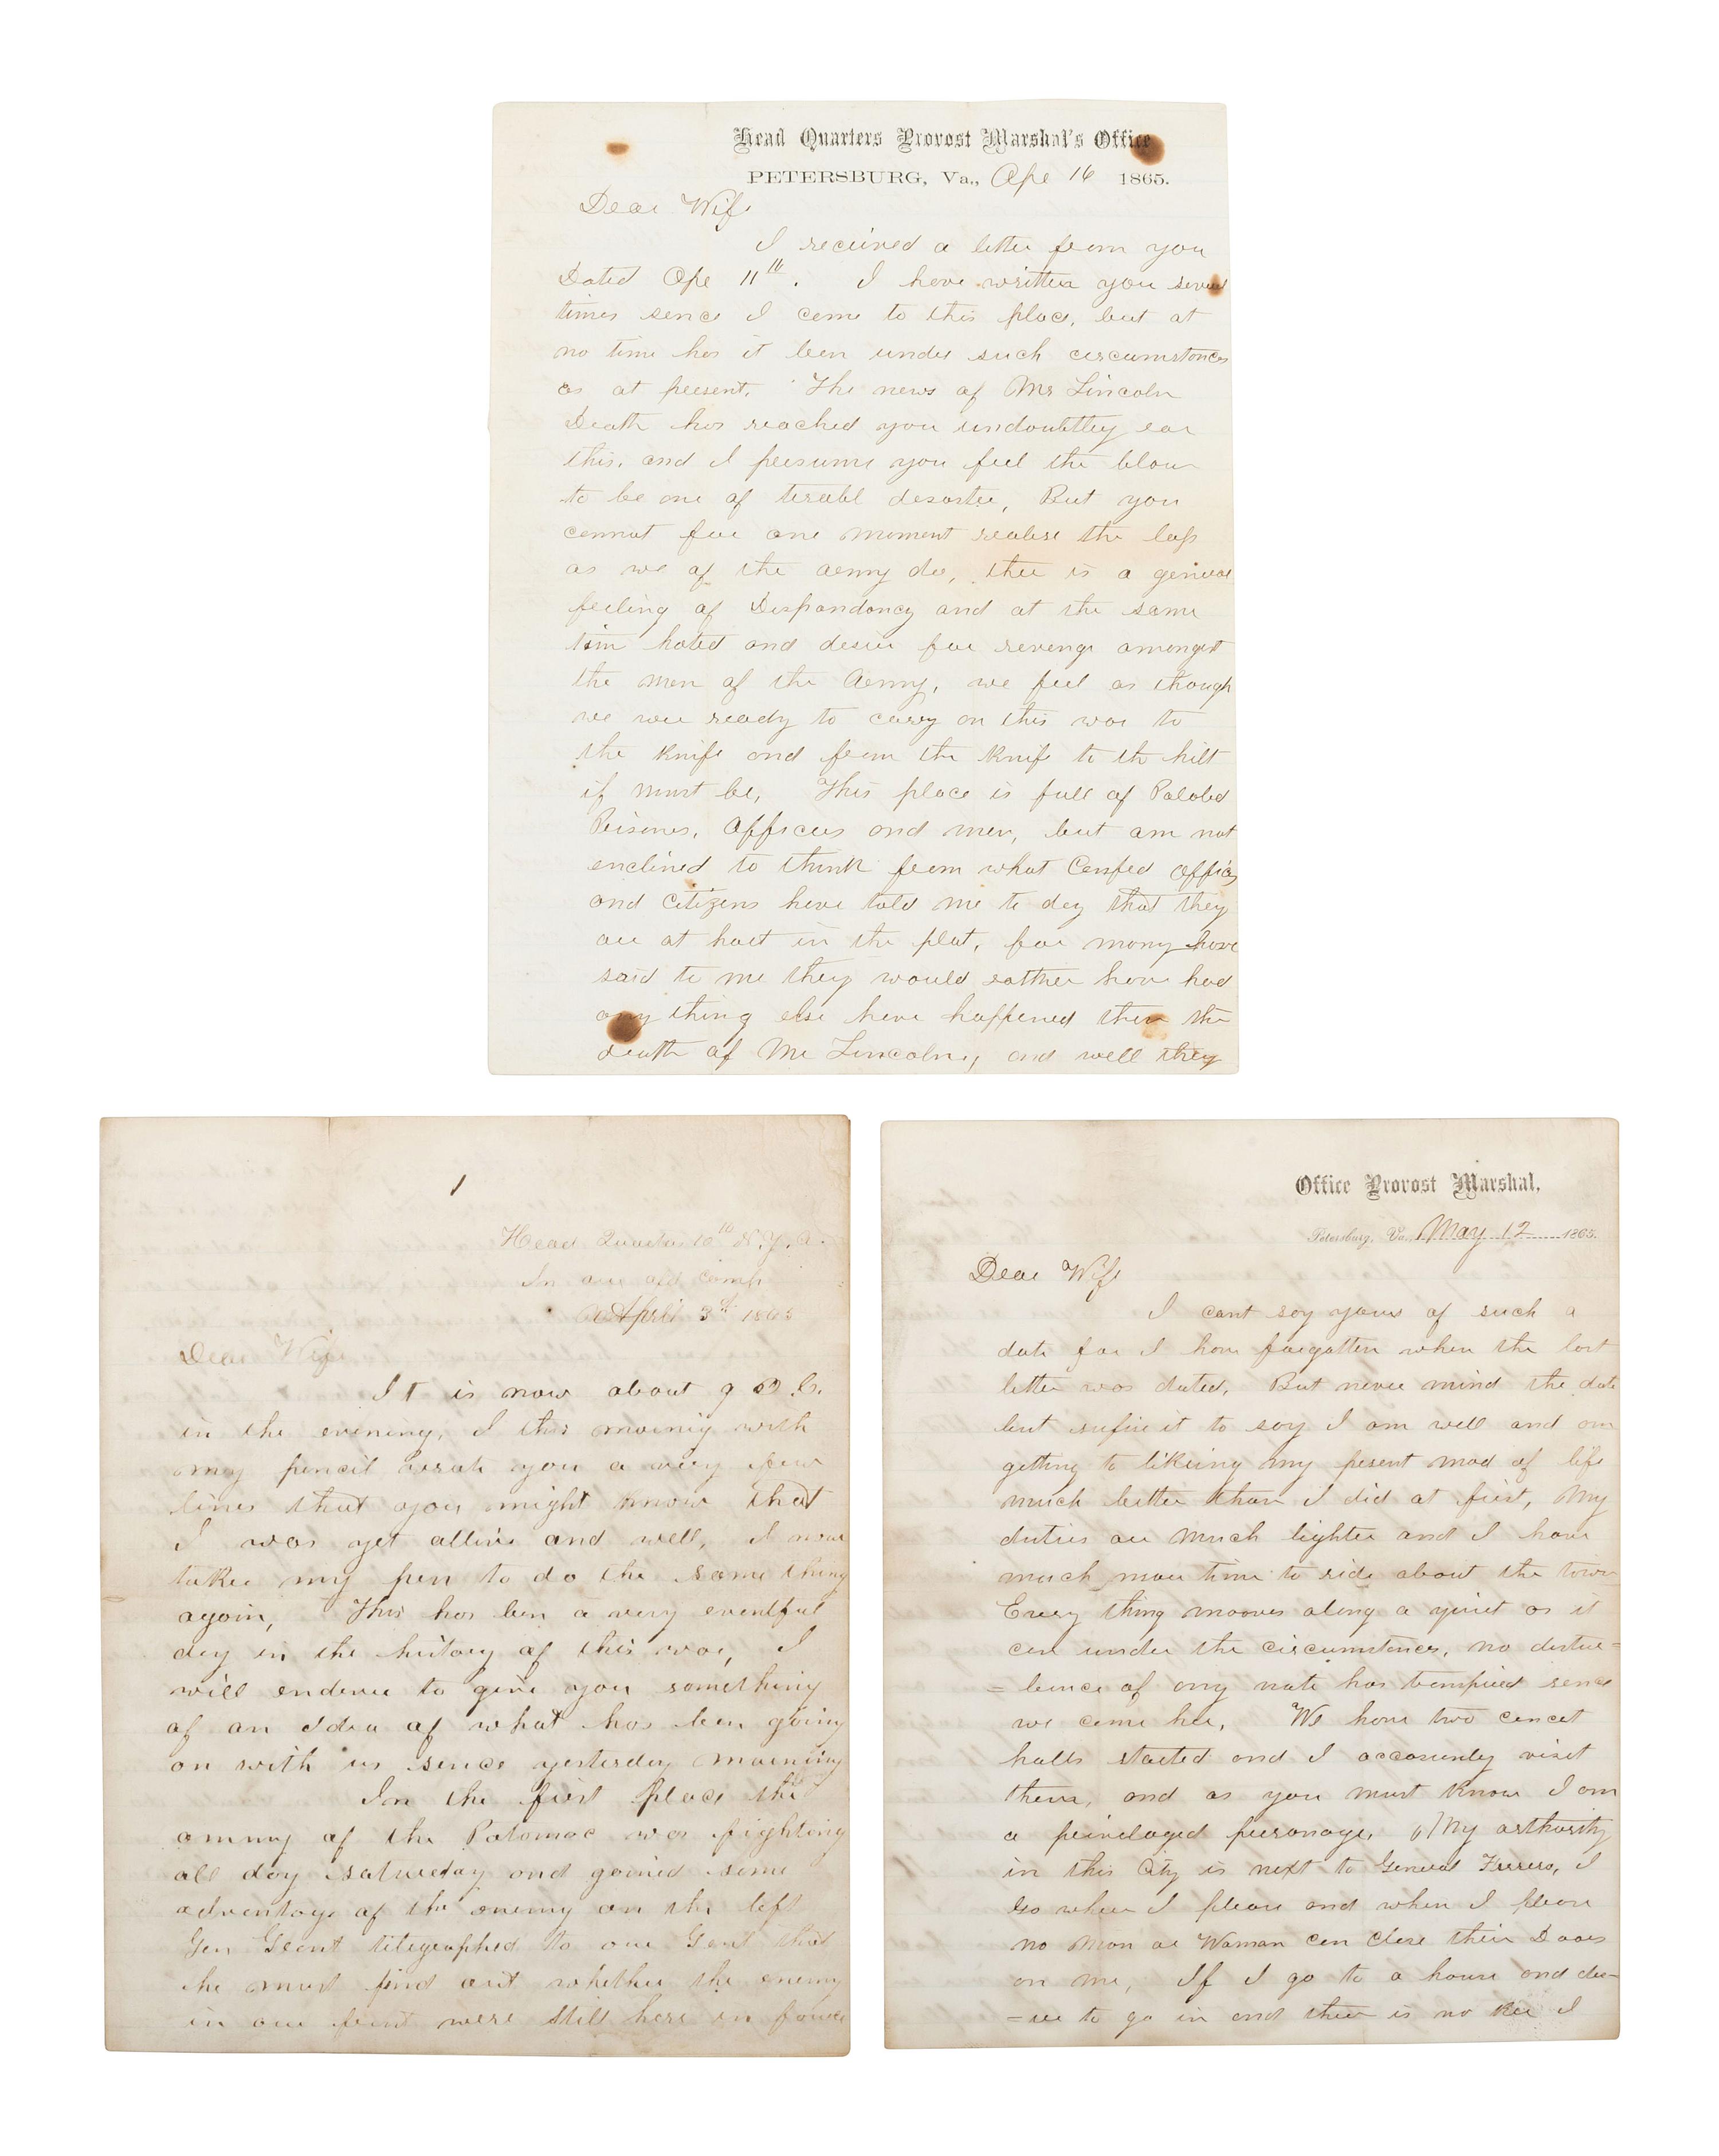 Head Quarters Provost Marshal's Office
PETERSBURG, Va., Ape 16 1865.
Dear Wife
I received a letter from you
Dated Ape 11th. I have written you
times sence I came to this place, but at
no time has it been under such circumstances
as at present. The news of Mr Lincoln
Death has reached you undoubttly ear
this, and I presume you feel the blow
to be one of desaster, But you
cannot for one moment realise the loss
as we of the army do, there is a general
feeling of Despondoncy and at the same
tim hated and desire for revenge amongst
the men of the Army, we feel as though
we were ready to carry on this war to
the Knife and from the Knife to th hilt
if must be, This place is full of Paroled
Prisoners, Officers and men, but am not
enclined to think from what Confed
and citizens have told me to day that they
are at hart in the plot, for many have
said to me they would rather have had
any thing else have happened then the
death of Mr Lincoln, and well they
1
Head Quarters 10th N.Y.A.
In our old camp
April 3d 1865
Dear Wife
It is now about 9
in the evening, I this morning with
my pencil wrote you a very few
lines that you might know that
I was yet allive and well, I now
take my pen to do the same thing
again, This has ben a very eventful
day in the history of this war, I
will endever to give you something
of an Idea of what has ben going
on with us sence yesterday morning
In the first place the
ammy of the Potomac was fighting
all day saturday and gained some
adventage of the enemy on the left
Gen Grant telegraphed to our Genl that
he must find out whether the enemy
in our front were still here in force
Office Provost Marshal.
Petersburg, Va., May 12 1865.
Dear Wife
I cant say yours of such a
date for I have forgotten when the last
letter was dated, But never mind the date
but sufise it to say I am well and am
getting to likeing my present mod of life
much better than I did at first, My
duties are much lighter and I have
much more time to ride about the town
Every thing mooves along a quiet as it
can under the circumstances, no distur=
=bence of any note has sence
we came her, We have two concet
halls started and I visit
them, and as you must know I am
a personage, My
in this City is next to General Ferrero, I
Go where I please and when I please
no man or Woman can close their Doors
on me, If I go to a house and des=
=ire to go in and ther is no Kee I